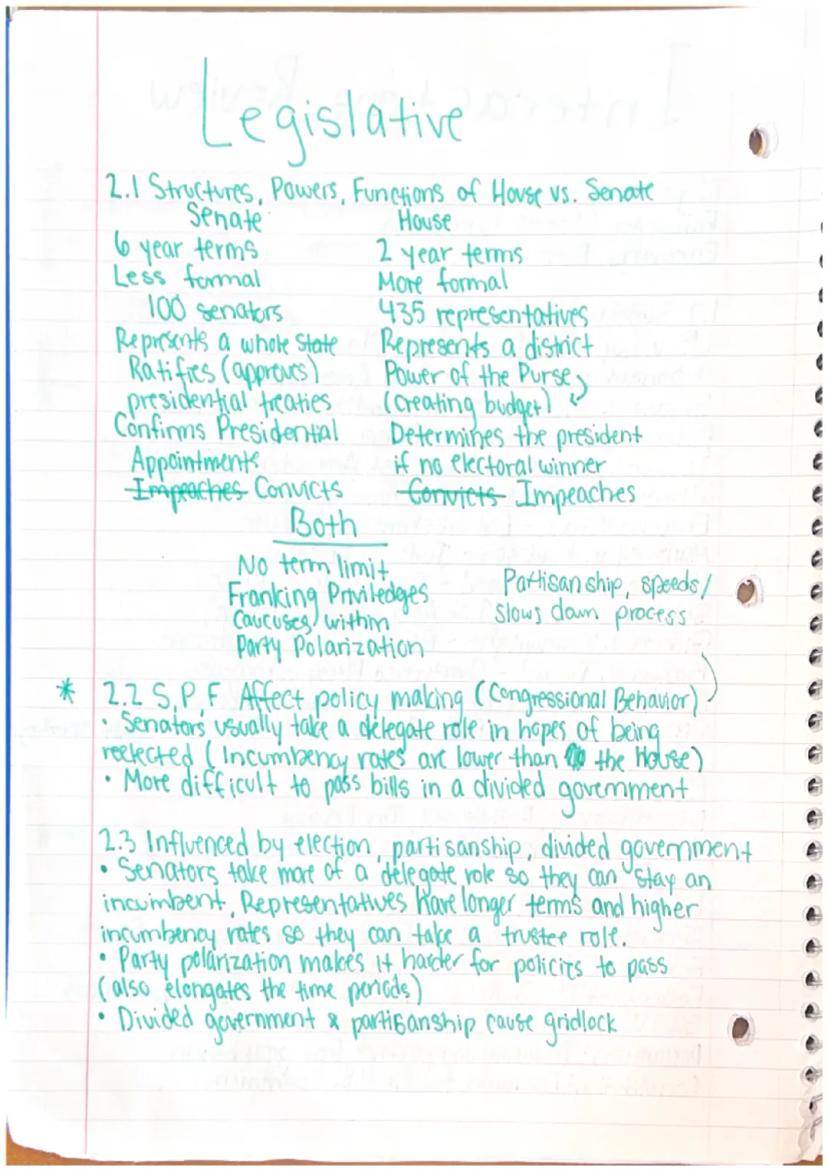 Legislative
2.1 Structures, Powers, Functions of House vs. Senate
Senate House
6 year terms 2 year terms
Less formal More formal
100 senators 435 representatives
Represents a whole State Represents a district
Ratifies (approves) Power of the Purse
presidential treaties (creating budget)
Confirms Presidential Determines the president
Appointments if no electoral winner
Impeaches Convicts Convicts Impeaches
Both
No term limit
Franking Priviledges
Caucuses within
Party Polarization
Partisanship, speeds/
slows down process
* 2.2 S, P, F Affect policy making (Congressional Behavior)
• Senators usually take a delegate role in hopes of being
reelected (Incumbency rates are lower than the House)
• More difficult to pass bills in a divided government
2.3 Influenced by election, partisanship, divided government
• Senators take more of a delegate role so they can stay an
incumbent, Representatives have longer terms and higher
incumbency rates so they can take a trustee role.
• Party polarization makes it harder for policies to pass
(also elongates the time periods)
• Divided government & partisanship cause gridlock